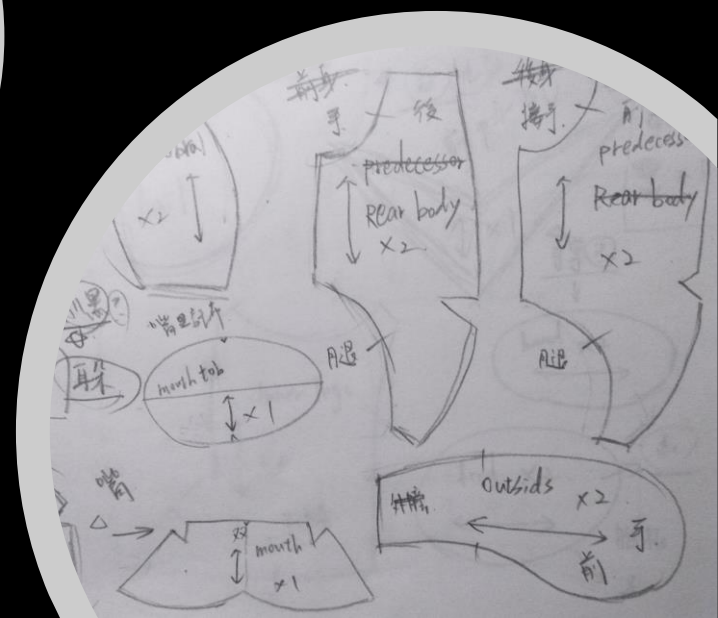 前身
手
後
predecessor
Rear body
×2
後身
接手
前
predecess
Rear body
×2
×2
腿
腿
耳朵
嘴里
mouth tob
×1
嘴
双
mouth
×1
Outsids
×2
手
前